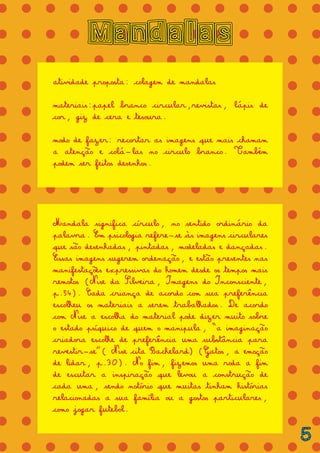 Mandalas
atividade proposta: colagem de mandalas
materiais:papel branco circular,revistas, lápis de
cor, giz de cera e tesoura.
modo de fazer: recortar as imagens que mais chamam
a atenção e colá-las no circulo branco. Também
podem ser feitos desenhos.
Mandala significa círculo, no sentido ordinário da
palavra. Em psicologia refere-se às imagens circulares
que são desenhadas, pintadas, modeladas e dançadas.
Essas imagens sugerem ordenação, e estão presentes nas
manifestações expressivas do homem desde os tempos mais
remotos (Nise da Silveira, Imagens do Inconsciente,
p.54). Cada criança de acordo com sua preferência
escolheu os materiais a serem trabalhados. De acordo
com Nise a escolha do material pode dizer muito sobre
o estado psíquico de quem o manipula, "a imaginação
criadora escolhe de preferência uma substância para
revestir-se" ( Nise cita Bachelard) (Gatos, a emoção
de lidar, p.30). No fim, fizemos uma roda a fim
de escutar a inspiração que levou a construção de
cada uma, sendo notório que muitas tinham histórias
relacionadas a sua família ou a gostos particulares,
como jogar futebol.
5